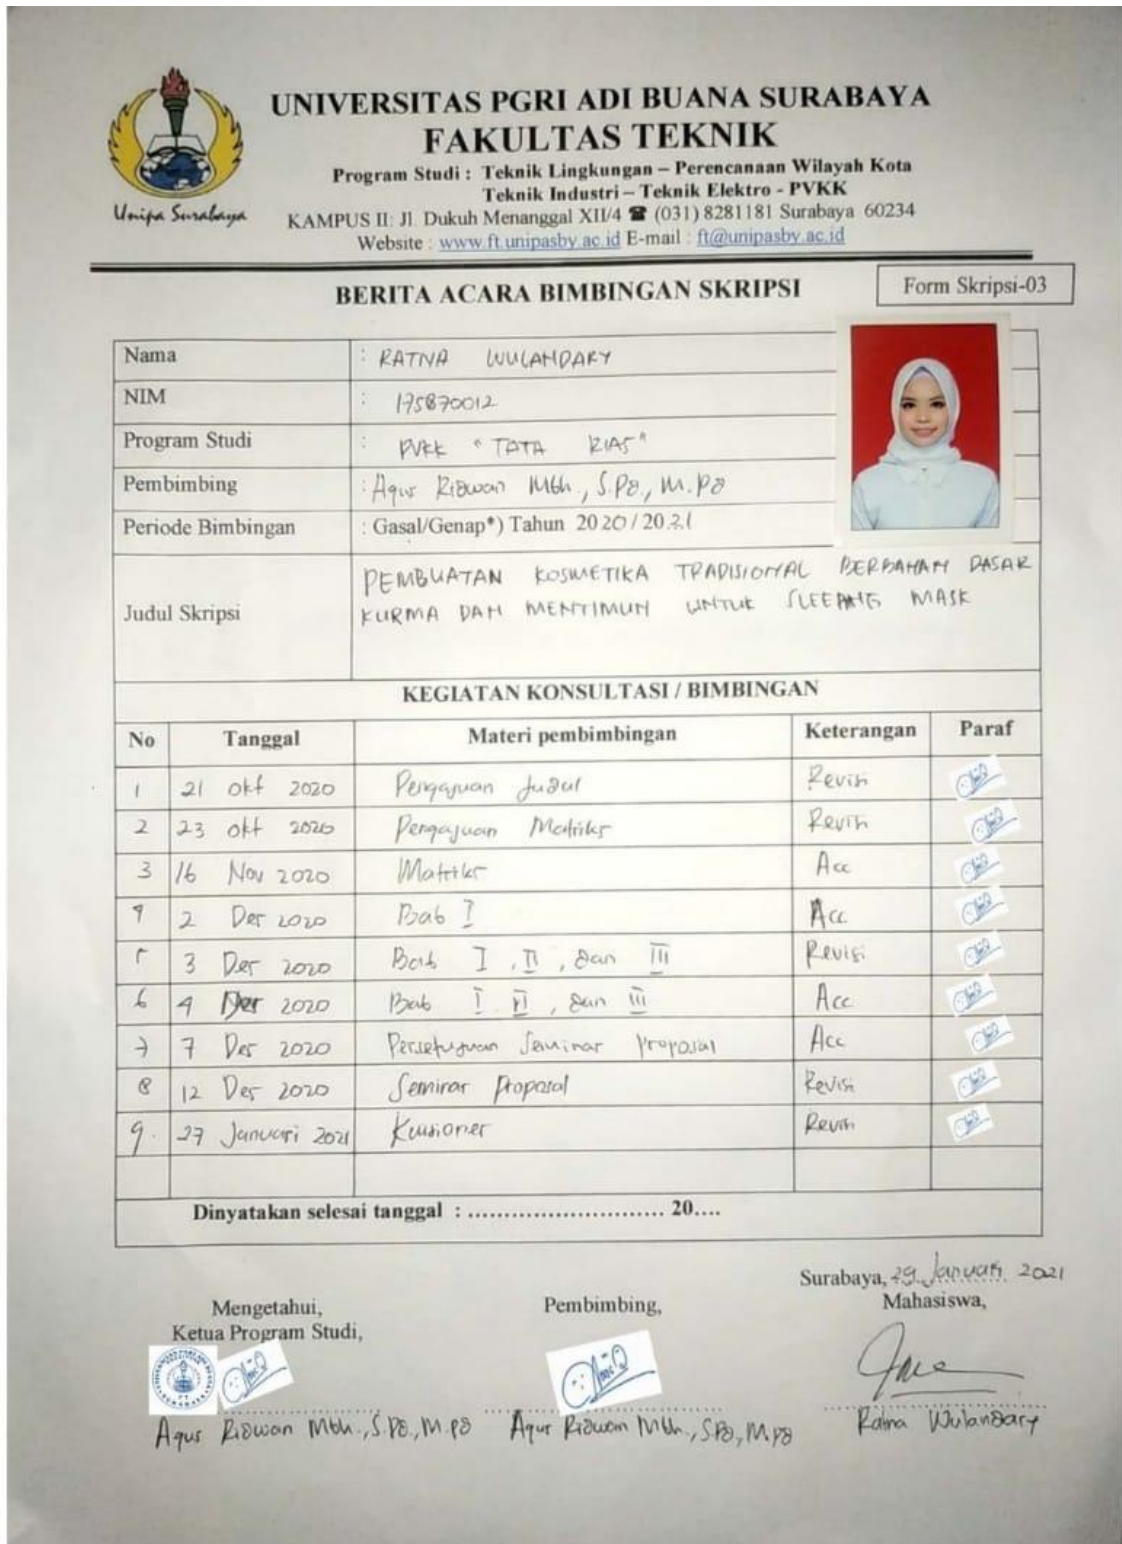 UNIVERSITAS PGRI ADI BUANA SURABAYA
FAKULTAS TEKNIK
Program Studi : Teknik Lingkungan – Perencanaan Wilayah Kota
Teknik Industri – Teknik Elektro - PVKK
KAMPUS II: Jl. Dukuh Menanggal XII/4 ☎ (031) 8281181 Surabaya 60234
Website : www.ft.unipasby.ac.id E-mail : ft@unipasby.ac.id
Unipa Surabaya
BERITA ACARA BIMBINGAN SKRIPSI
Form Skripsi-03
Nama : RATNA WULANDARY
NIM : 175870012
Program Studi : PVKK "TATA RIAS"
Pembimbing : Agus Ridwan Mbh., S.Pd., M.Pd
Periode Bimbingan : Gasal/Genap*) Tahun 2020/2021
Judul Skripsi
PEMBUATAN KOSMETIKA TRADISIONAL BERBAHAN DASAR
KURMA DAN MENTIMUN UNTUK SLEEPING MASK
KEGIATAN KONSULTASI / BIMBINGAN
No Tanggal Materi pembimbingan Keterangan Paraf
1 21 Okt 2020 Pengajuan Judul Revisi
2 23 Okt 2020 Pengajuan Matriks Revisi
3 16 Nov 2020 Matriks Acc
4 2 Des 2020 Bab I Acc
5 3 Des 2020 Bab I, II, dan III Revisi
6 4 Des 2020 Bab I. II, dan III Acc
7 7 Des 2020 Persetujuan Seminar Proposal Acc
8 12 Des 2020 Seminar Proposal Revisi
9. 27 Januari 2021 Kuisioner Revisi
Dinyatakan selesai tanggal : ........................... 20....
Surabaya, 29 Januari 2021
Mengetahui,
Ketua Program Studi,
Pembimbing,
Mahasiswa,
Agus Ridwan Mbh., S.Pd., M.Pd
Agus Ridwan Mbh., S.Pd, M.Pd
Ratna Wulandary